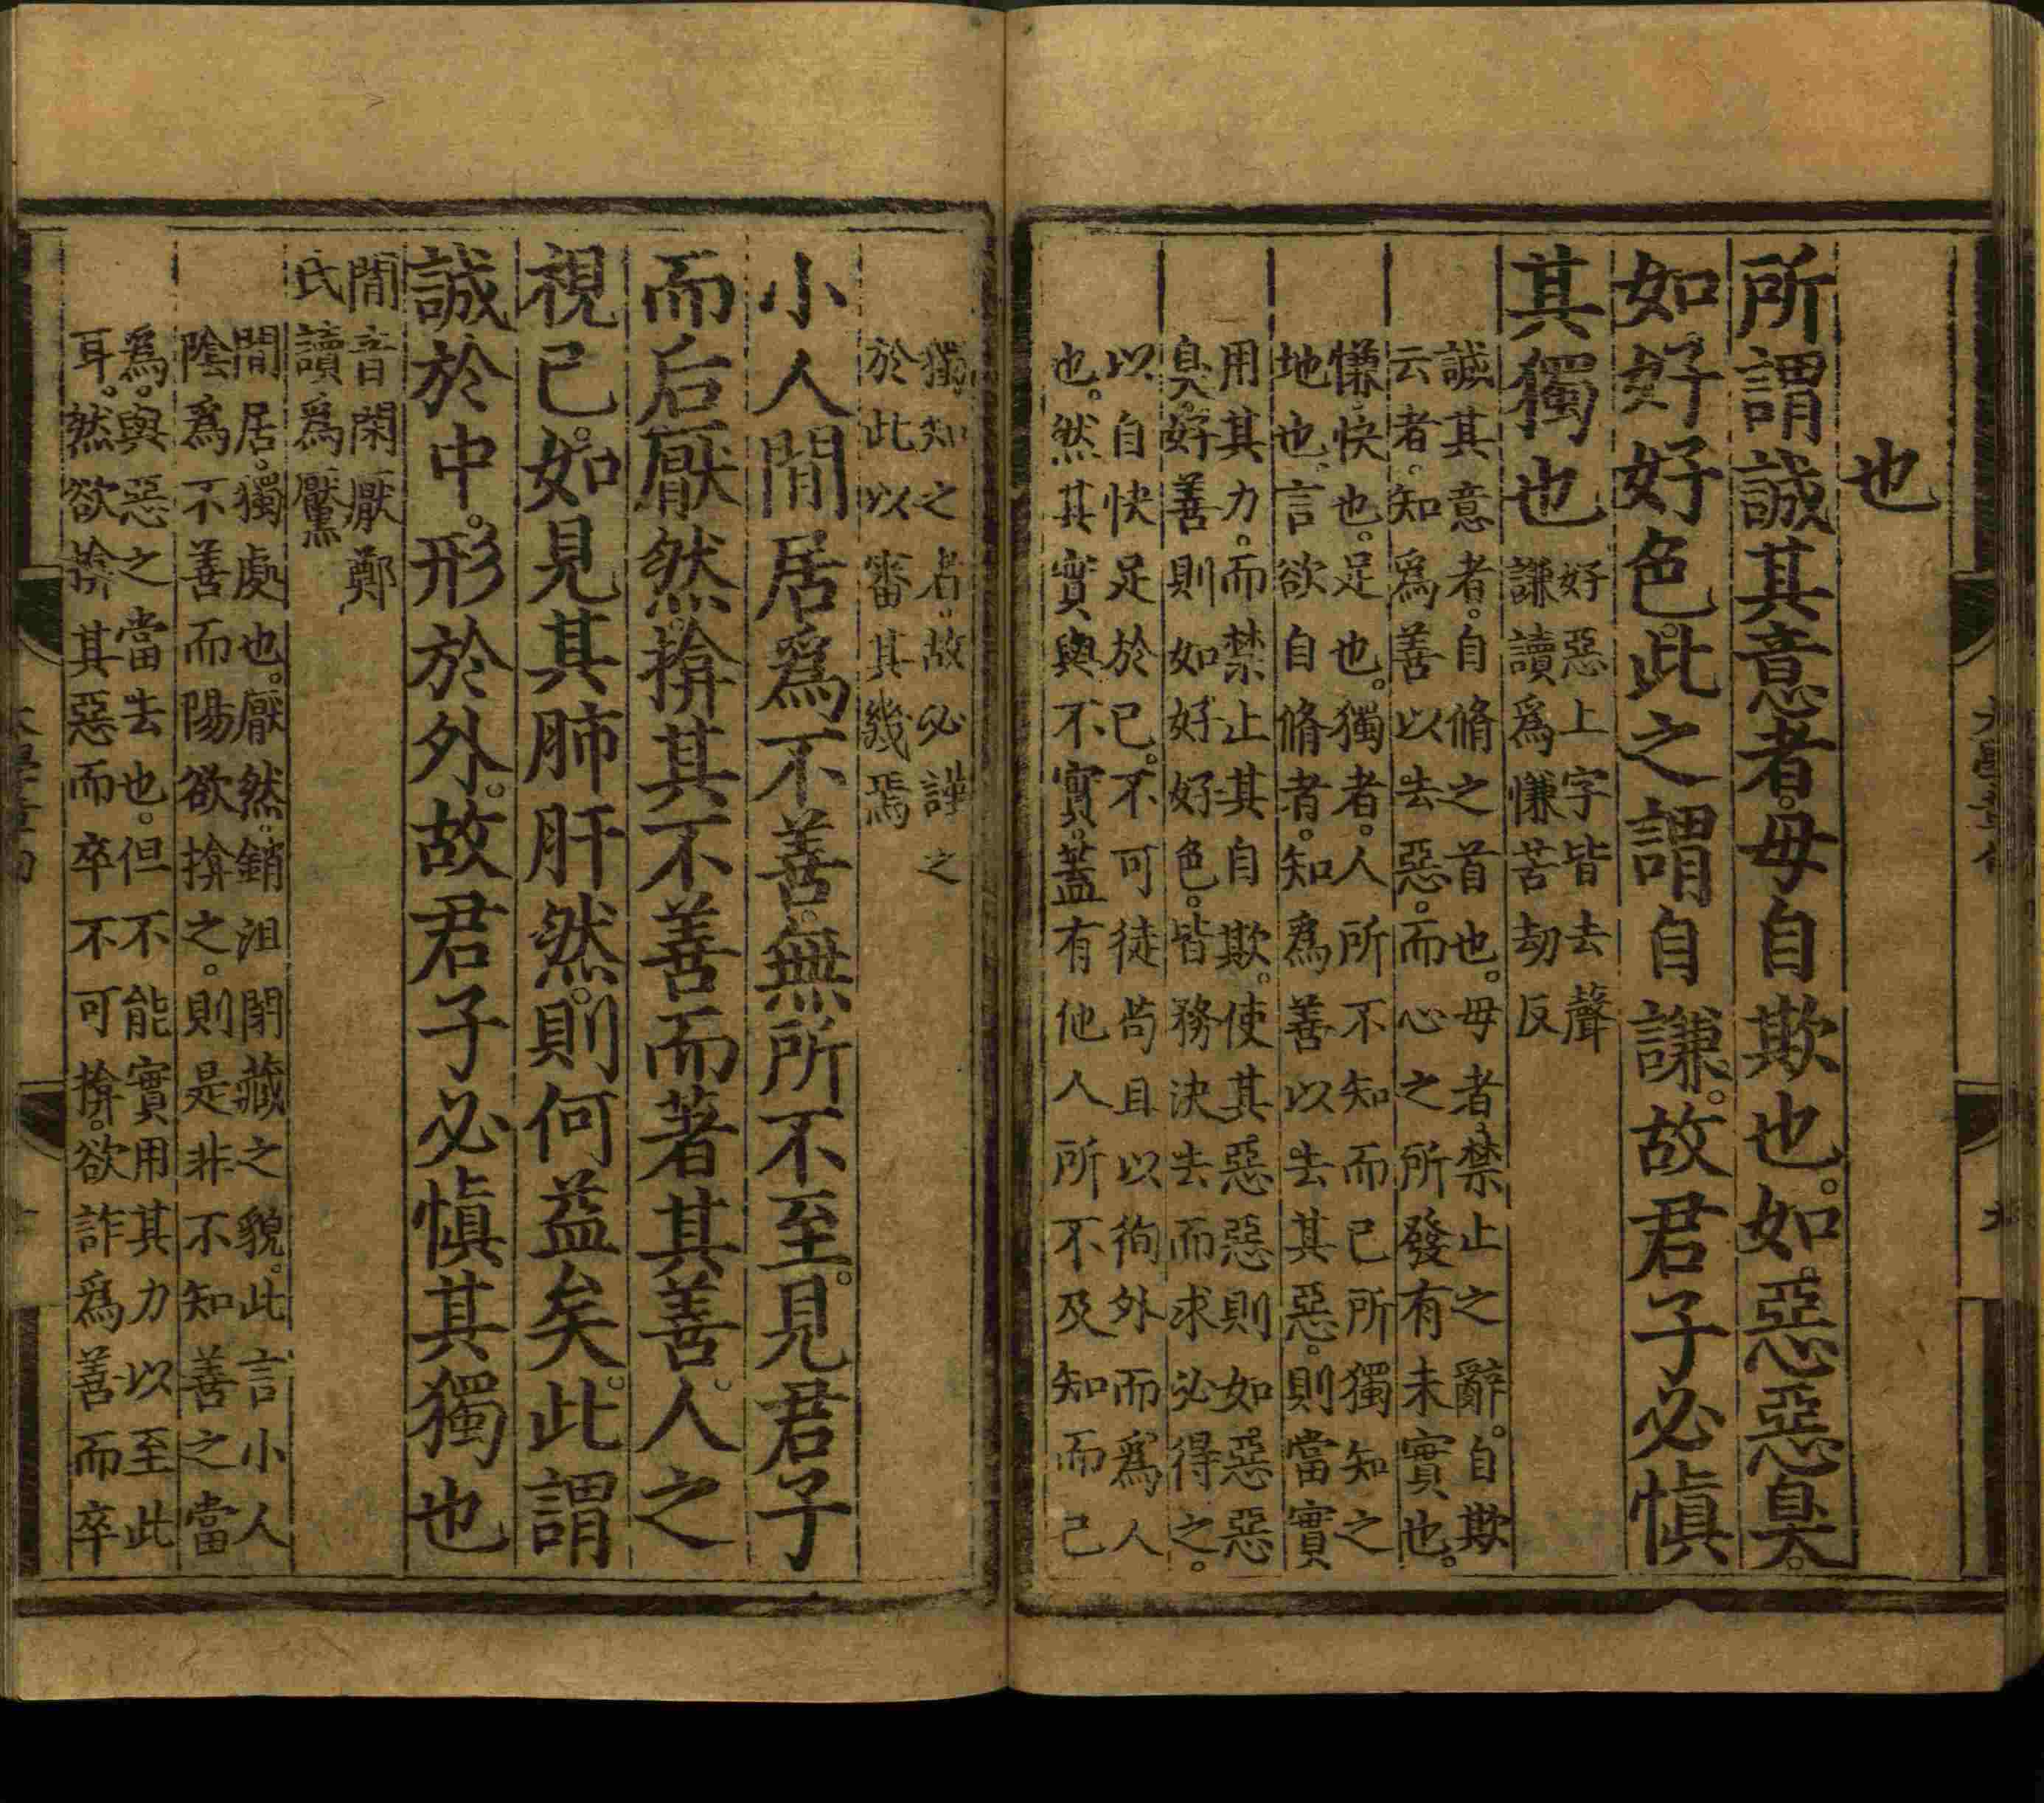 也
所謂誠其意者。毋自欺也。如惡惡臭。
如好好色。此之謂自謙。故君子必愼
其獨也
好惡上字皆去聲
謙讀爲慊苦劫反
誠其意者。自脩之首也。毋者禁止之辭。自欺
云者。知爲善以去惡。而心之所發有未實也。
慊快也。足也。獨者。人所不知而己所獨知之
地也。言欲自脩者。知爲善以去其惡。則當實
用其力。而禁止其自欺。使其惡惡則如惡惡
臭。好善則如好好色。皆務決去而求必得之。
以自快足於己。不可徒苟且以徇外而爲人
也。然其實與不實。蓋有他人所不及知而己
獨知之者。故必謹之
於此以審其幾焉
小人閒居爲不善。無所不至。見君子
而后厭然。揜其不善而著其善。人之
視己。如見其肺肝然。則何益矣。此謂
誠於中。形於外。故君子必愼其獨也
閒音閑厭鄭
氏讀爲黶
閒居。獨處也。厭然。銷沮閉藏之貌。此言小人
陰爲不善而陽欲揜之。則是非不知善之當
爲。與惡之當去也。但不能實用其力以至此
耳。然欲揜其惡而卒不可揜。欲詐爲善而卒